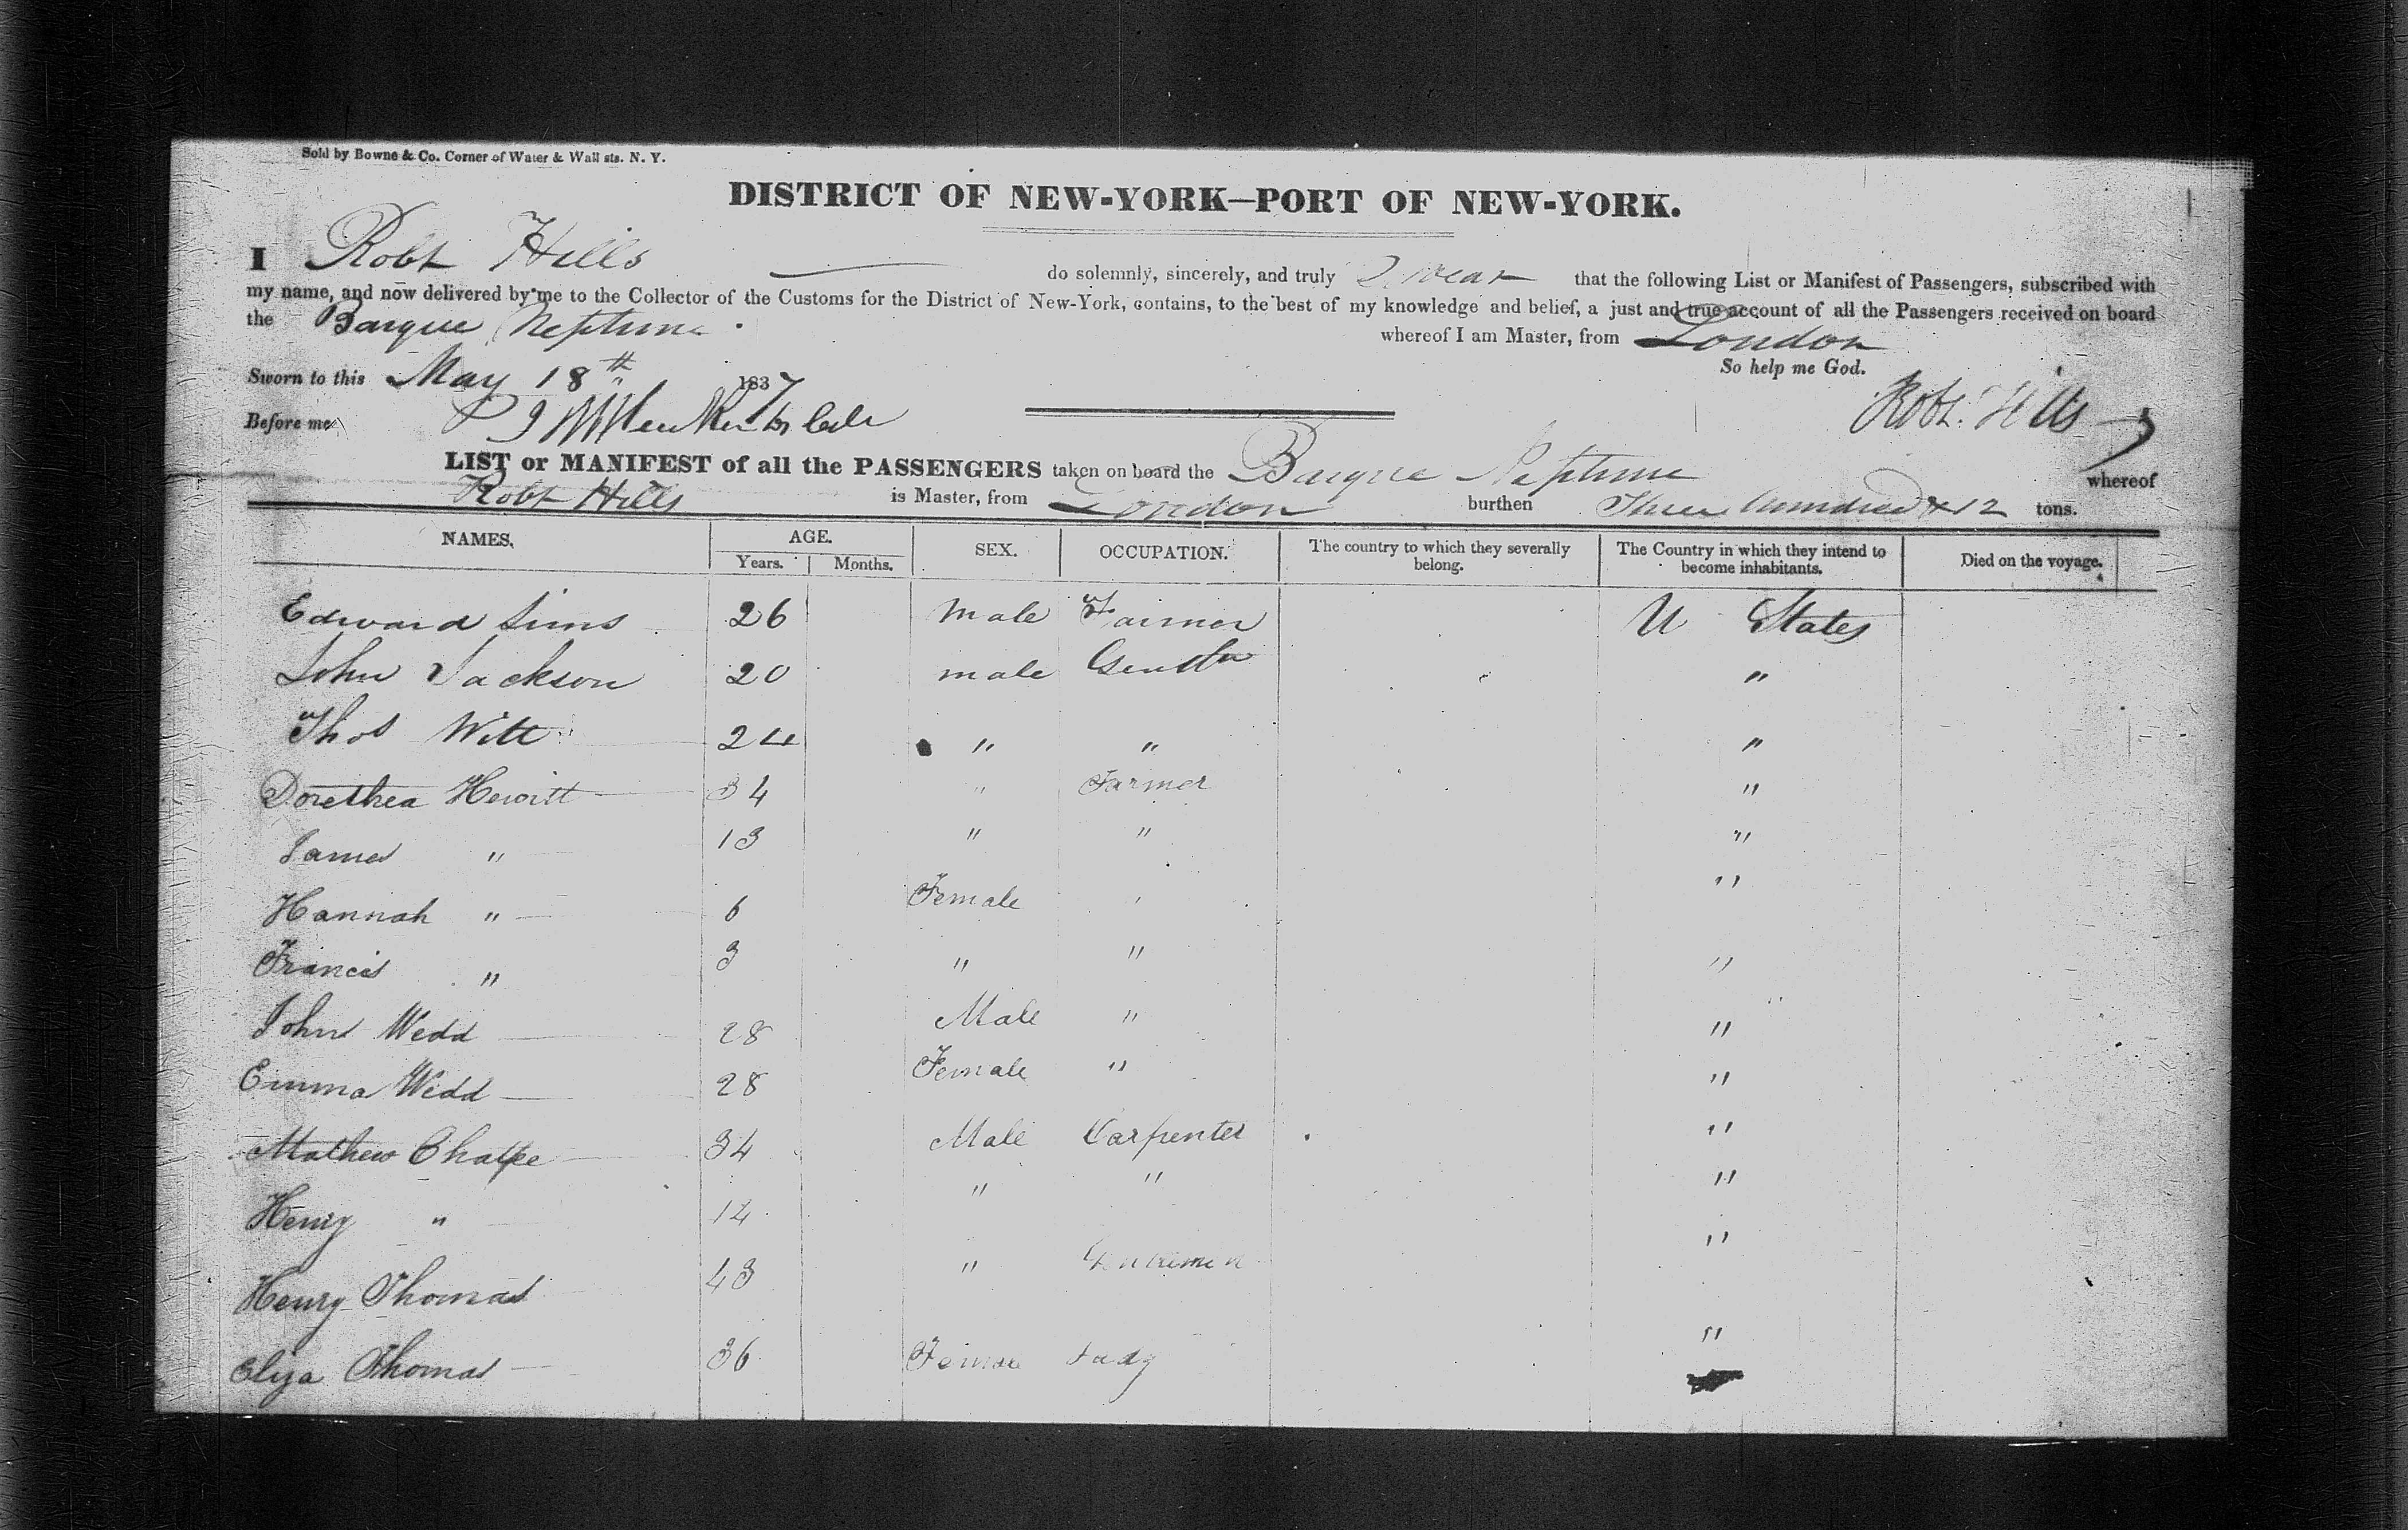 Sold by Bowne & Co. Corner of Water & Wall sts. N. Y.
DISTRICT OF NEW-YORK—PORT OF NEW-YORK.
I Robt Hills do solemnly, sincerely, and truly Swear that the following List or Manifest of Passengers, subscribed with
my name, and now delivered by me to the Collector of the Customs for the District of New-York, contains, to the best of my knowledge and belief, a just and true account of all the Passengers received on board
the Barque Neptune whereof I am Master, from London
So help me God.
Sworn to this May 18th 1837
Robt. Hills
Before me
LIST or MANIFEST of all the PASSENGERS taken on board the Barque Neptune whereof
Robt Hills is Master, from London burthen Three hundred & 12 tons.
NAMES. AGE. Years. Months. SEX. OCCUPATION. The country to which they severally belong. The Country in which they intend to become inhabitants. Died on the voyage.
Edward Sims 26 Male Farmer U States
John Jackson 20 male Gentln "
Thos Witt 24 " " "
Dorethea Hewitt 34 " Farmer "
James " 13 " " "
Hannah " 6 Female " "
Francis " 3 " " "
John Wedd 28 Male " "
Emma Wedd 28 Female " "
Mathew 34 Male Carpenter "
Henry " 12 " " "
Henry Thomas 43 " Gentlemen "
Eliza Thomas 36 Female Lady "